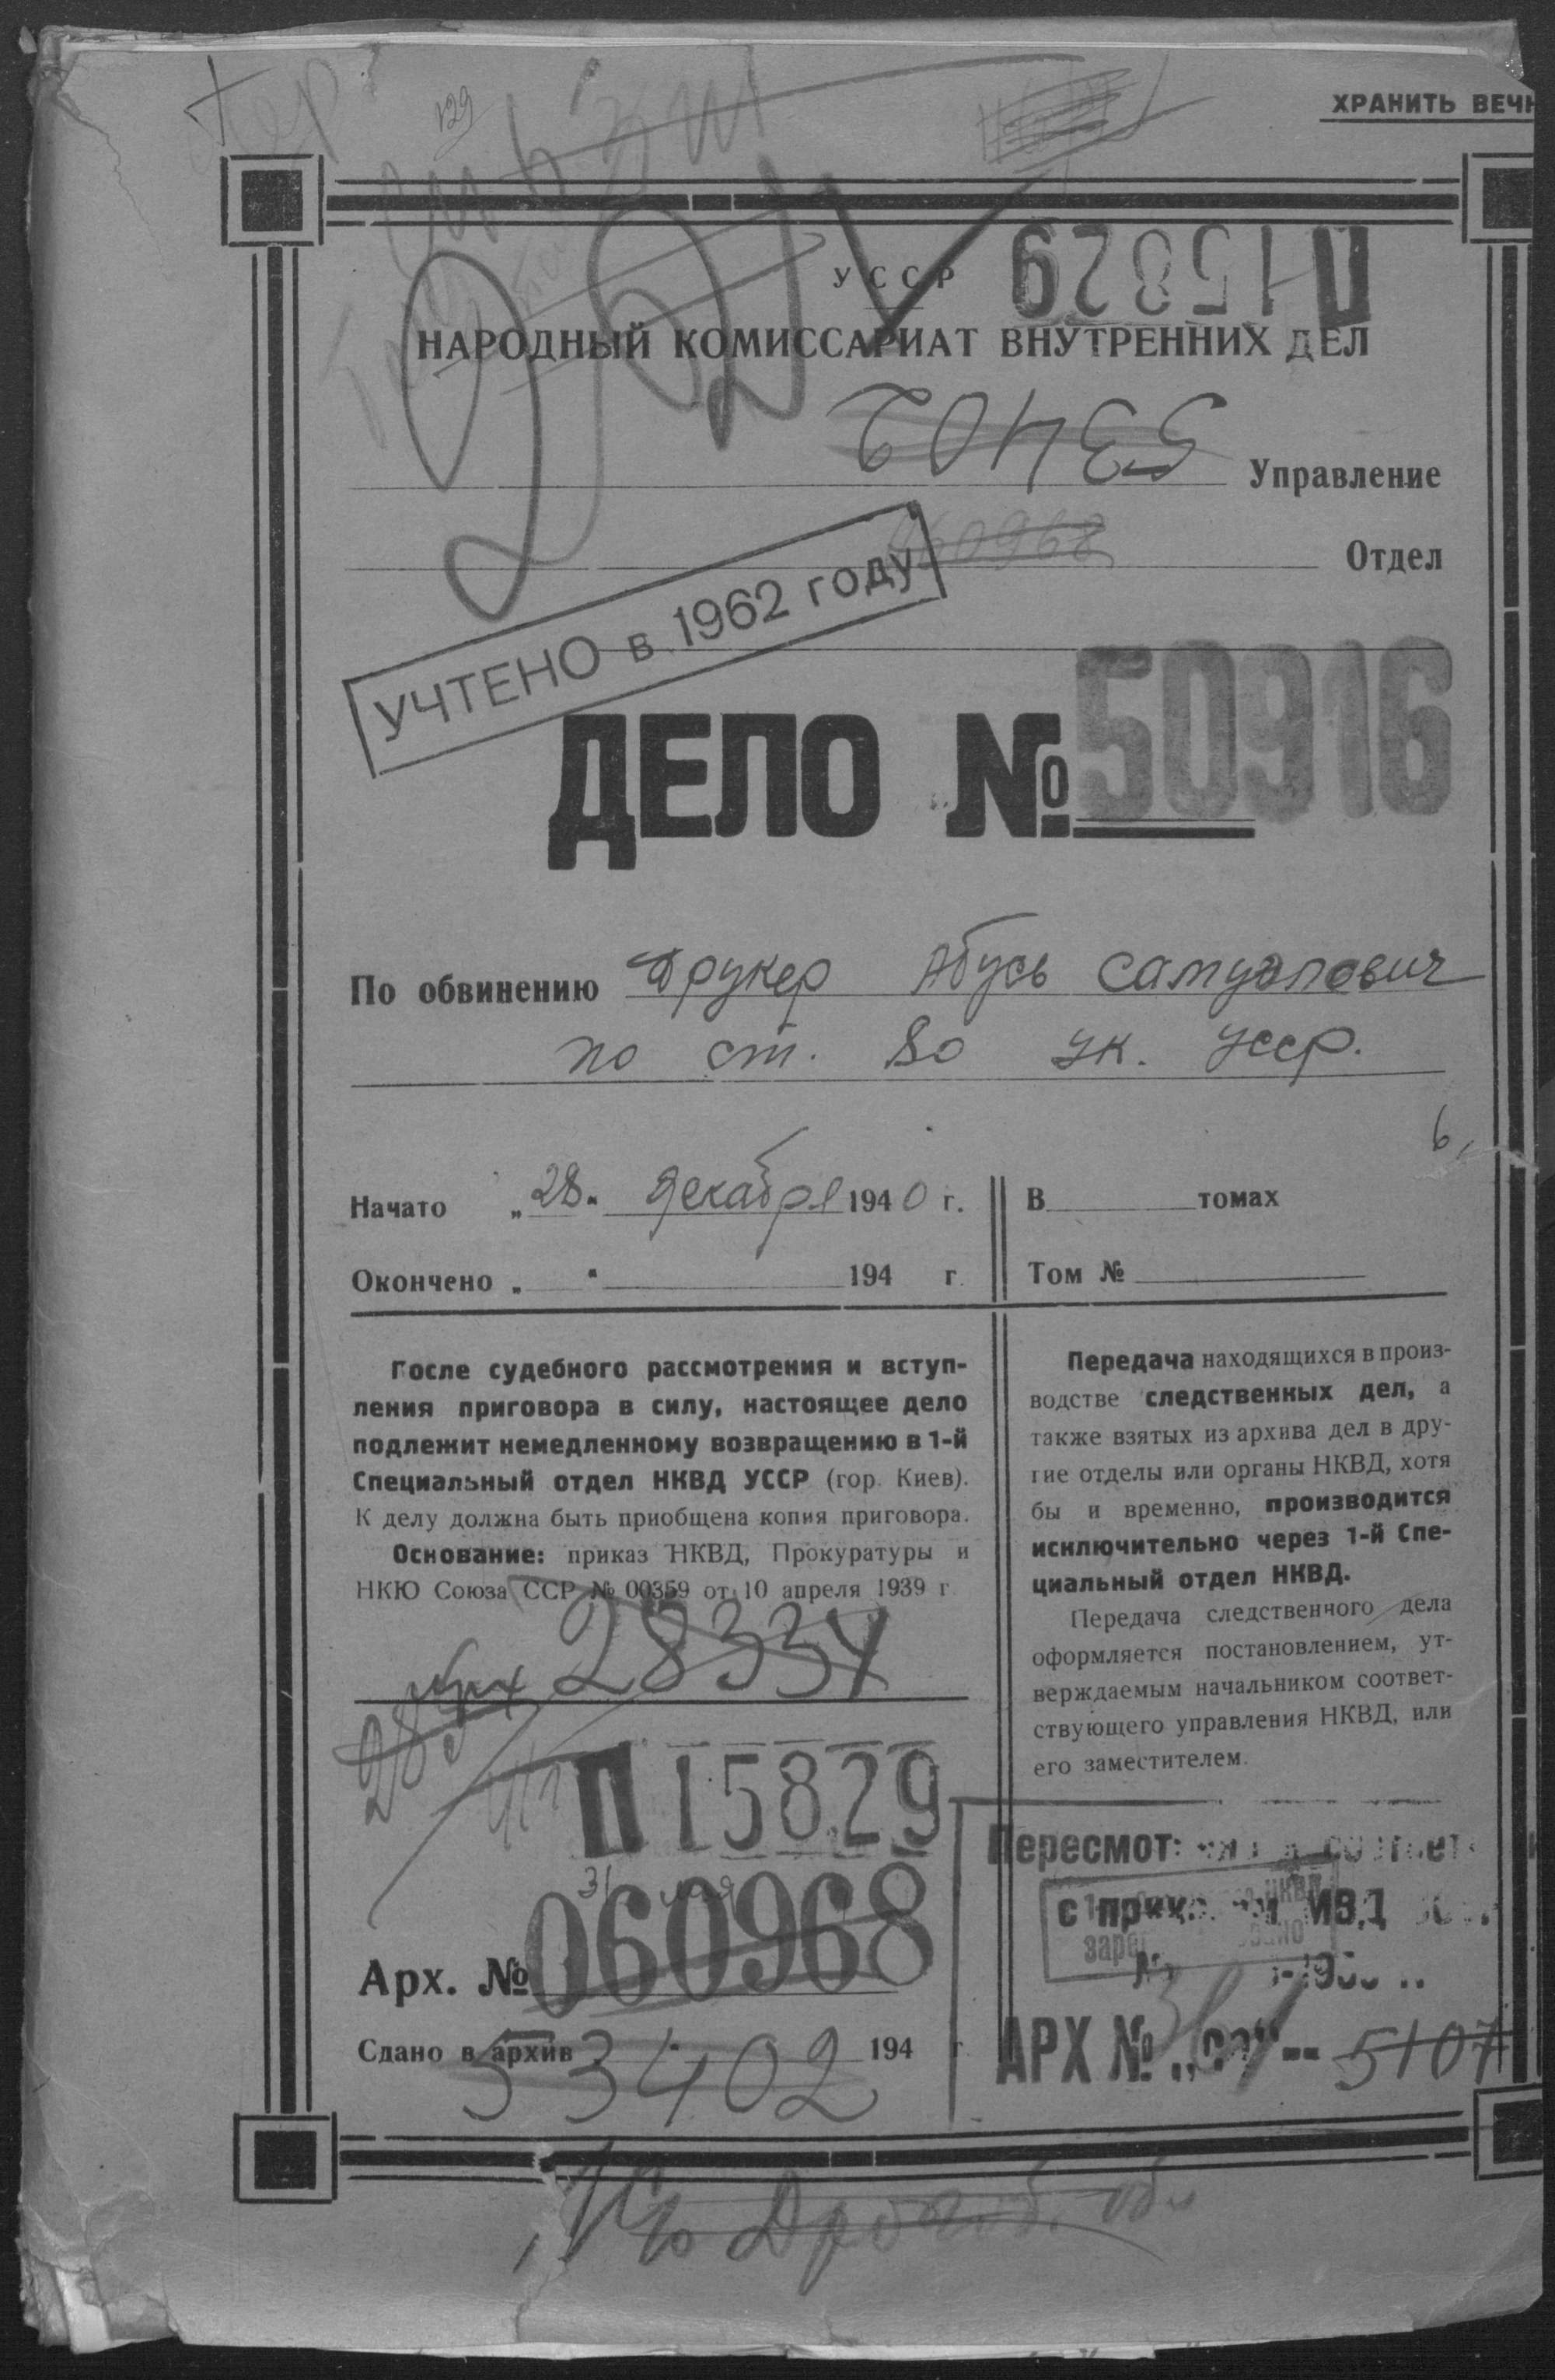 129
ХРАНИТЬ ВЕЧН
УССР
П 15829
НАРОДНЫЙ КОМИССАРИАТ ВНУТРЕННИХ ДЕЛ
53402
Управление
060968
Отдел
УЧТЕНО в 1962 году
ДЕЛО № 50916
По обвинению Друкер Абусь Самуэлович
по ст. 80 УК. УССР.
6
Начато „28" декабря 1940 г.
В томах
Окончено „ " 194 г.
Том №
После судебного рассмотрения и вступ-
ления приговора в силу, настоящее дело
подлежит немедленному возвращению в 1-й
Специальный отдел НКВД УССР (гор. Киев).
К делу должна быть приобщена копия приговора.
Основание: приказ НКВД, Прокуратуры и
НКЮ Союза ССР № 00359 от 10 апреля 1939 г.
Передача находящихся в произ-
водстве следственных дел, а
также взятых из архива дел в дру-
гие отделы или органы НКВД, хотя
бы и временно, производится
исключительно через 1-й Спе-
циальный отдел НКВД.
Передача следственного дела
оформляется постановлением, ут-
верждаемым начальником соответ-
ствующего управления НКВД, или
его заместителем.
28334
П 15829
Арх. № 060968
Сдано в архив 194 г
53402
с МВД
АРХ № 5107